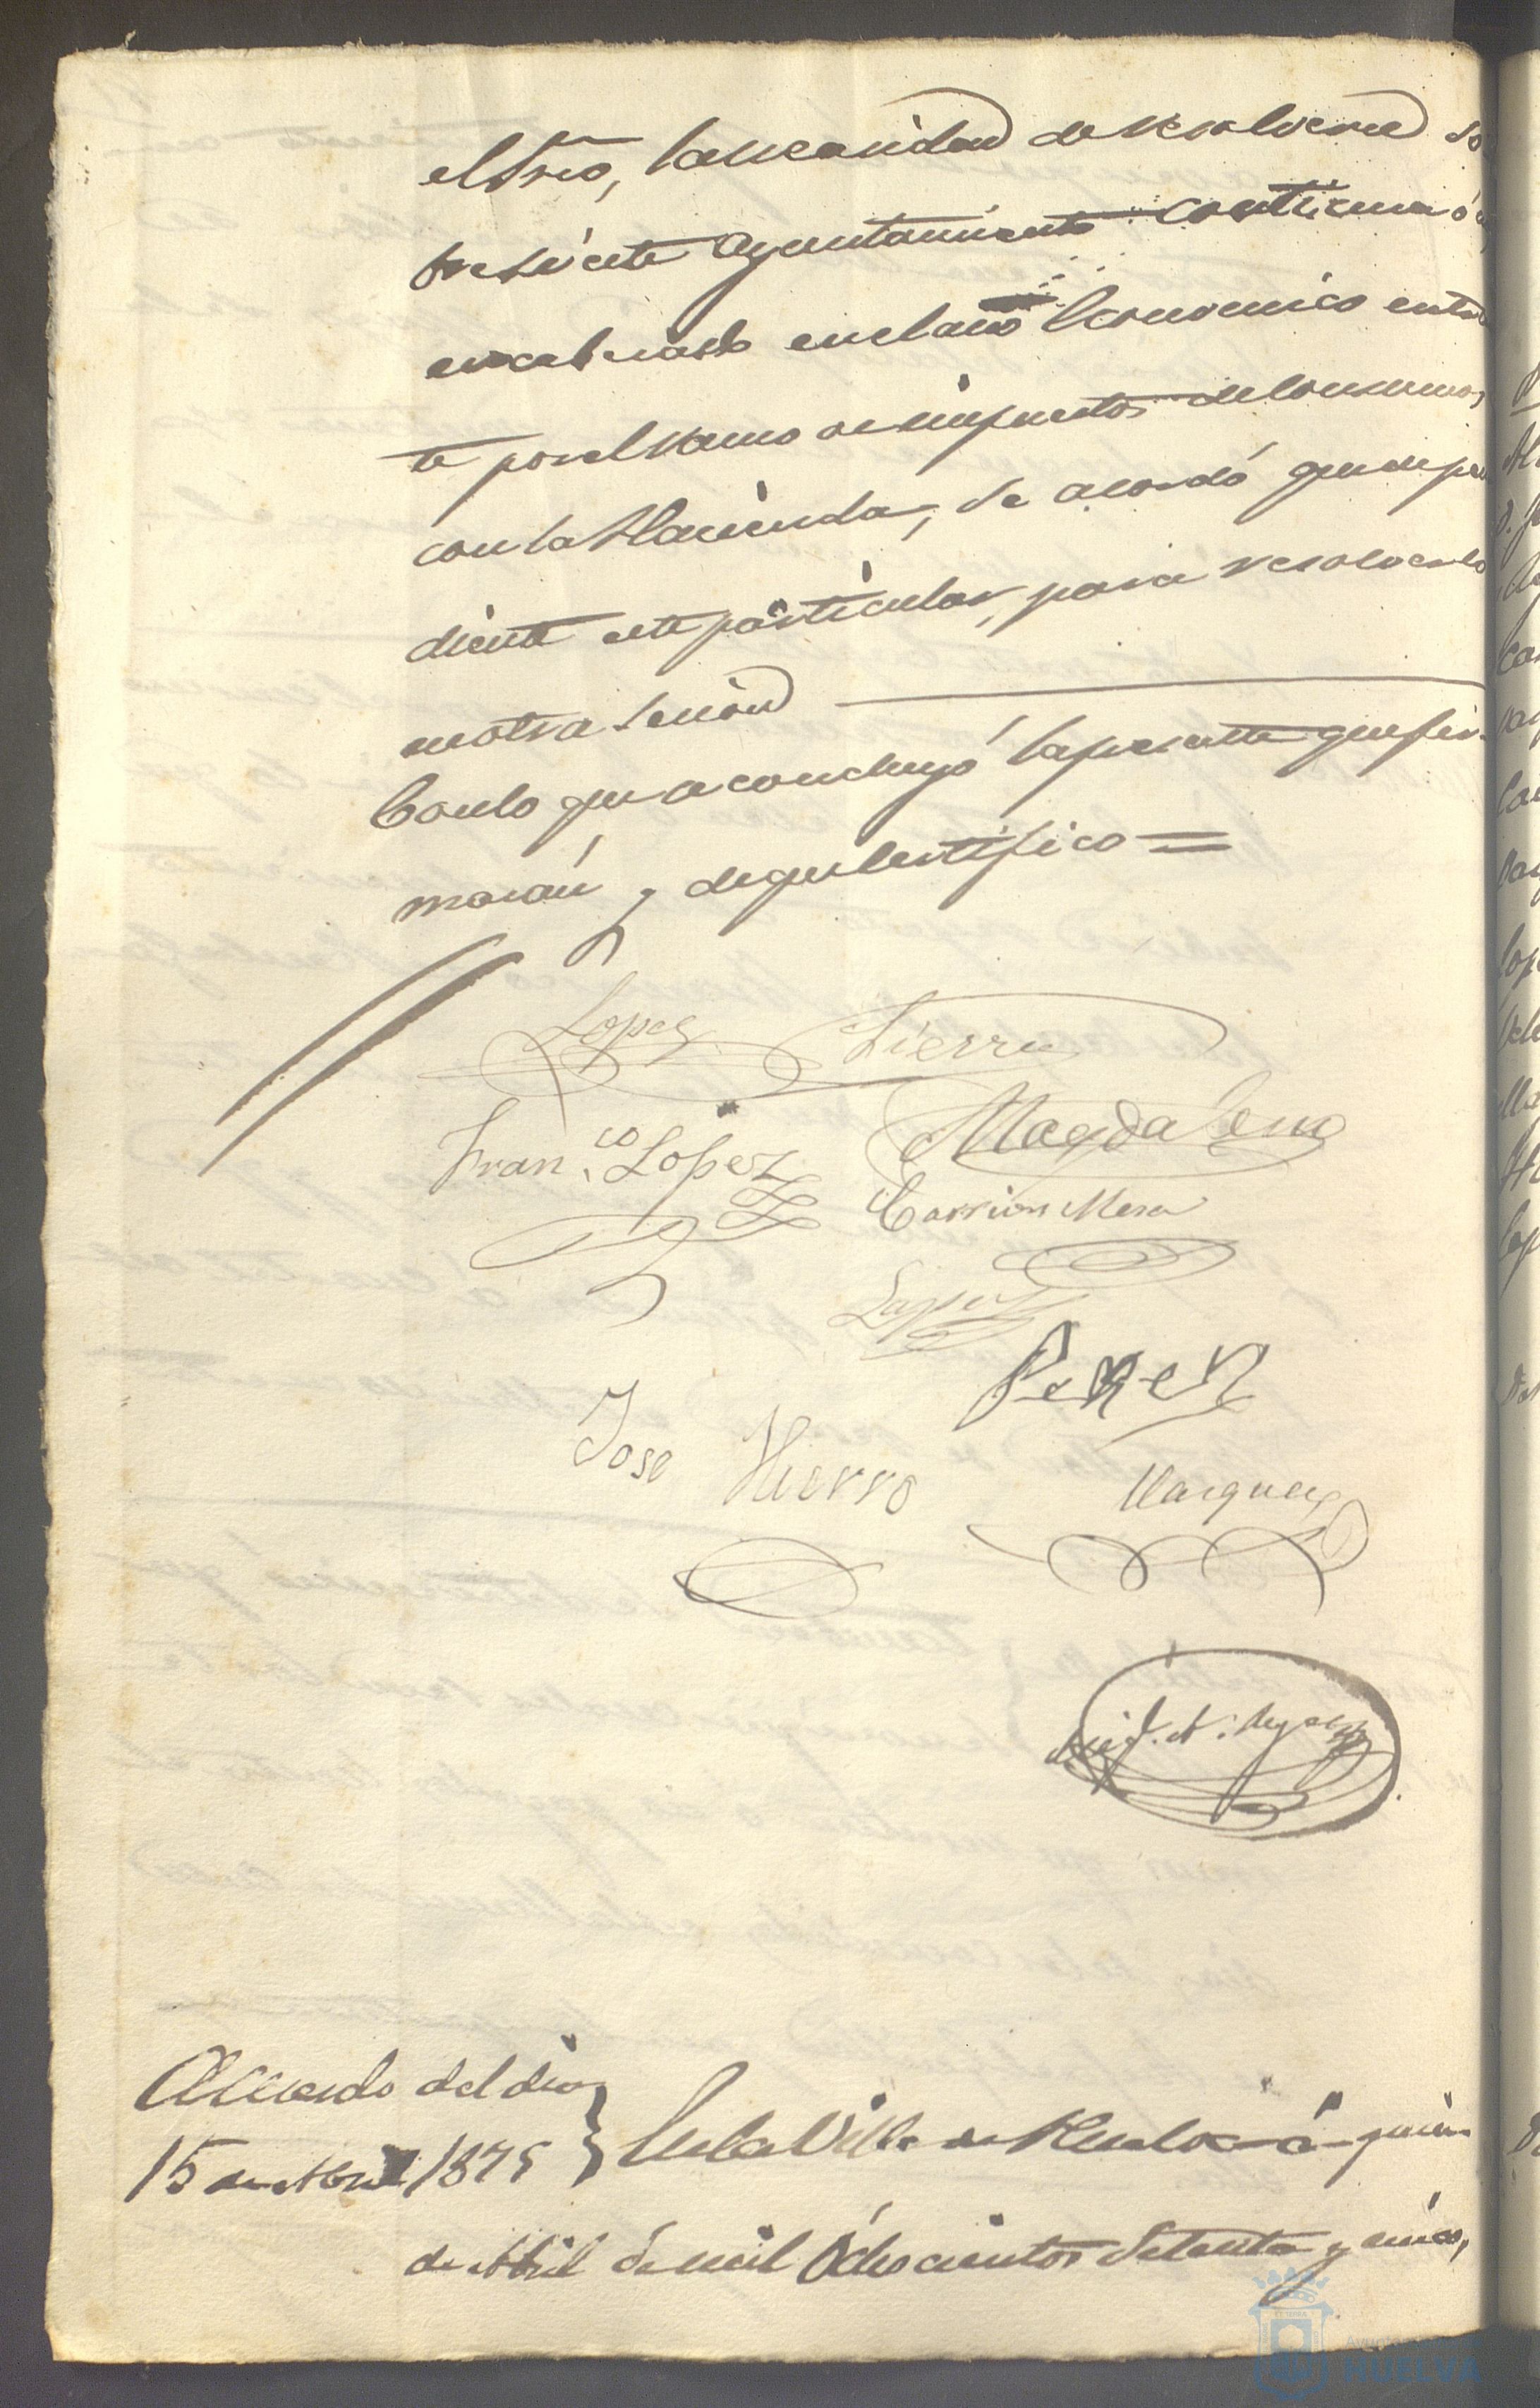 el Srio, la necesidad de resolver si
presente Ayuntamiento continuará
encabezado en el año Economico entran
te por el ramo de impuestos de consumos
con la Hacienda, se acordó que de pen
diente este particular, para resolverlo
en otra sesion
Con lo que se concluyó la presente que fir-
marán y de que Certifico =
Lopez Sierra
Fran.co Lopez Magdalena
Carrion Mesa
Lopez
Perez
Jose Hierro Marquez
Acuerdo del dia
15 de Abril 1875
En la Villa de Huelva á quince
de Abril de mil Ochocientos Setenta y cinco,
HUELVA